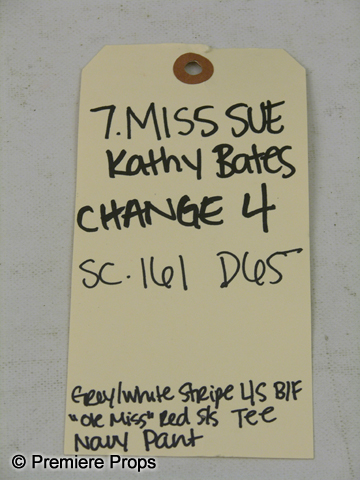 7. MISS SUE
Kathy Bates
CHANGE 4
SC. 161 D65
Grey/White Stripe L/S B/F
"Ole Miss" Red S/s Tee
Navy Pant
© Premiere Props